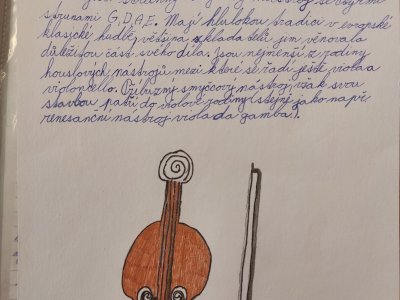 strunami G, D, A, E. Mají hlubokou tradici v evropské
klasické hudbě, většina skladatelů jim věnovala
důležitou část svého díla. Jsou nejmenší z rodiny
houslových nástrojů mezi které se řadí ještě viola a
violoncello. Příbuzný smyčcový nástroj však svou
stavbou patří do violové rodiny (stejně jako např.
renesanční nástroj viola da gamba).